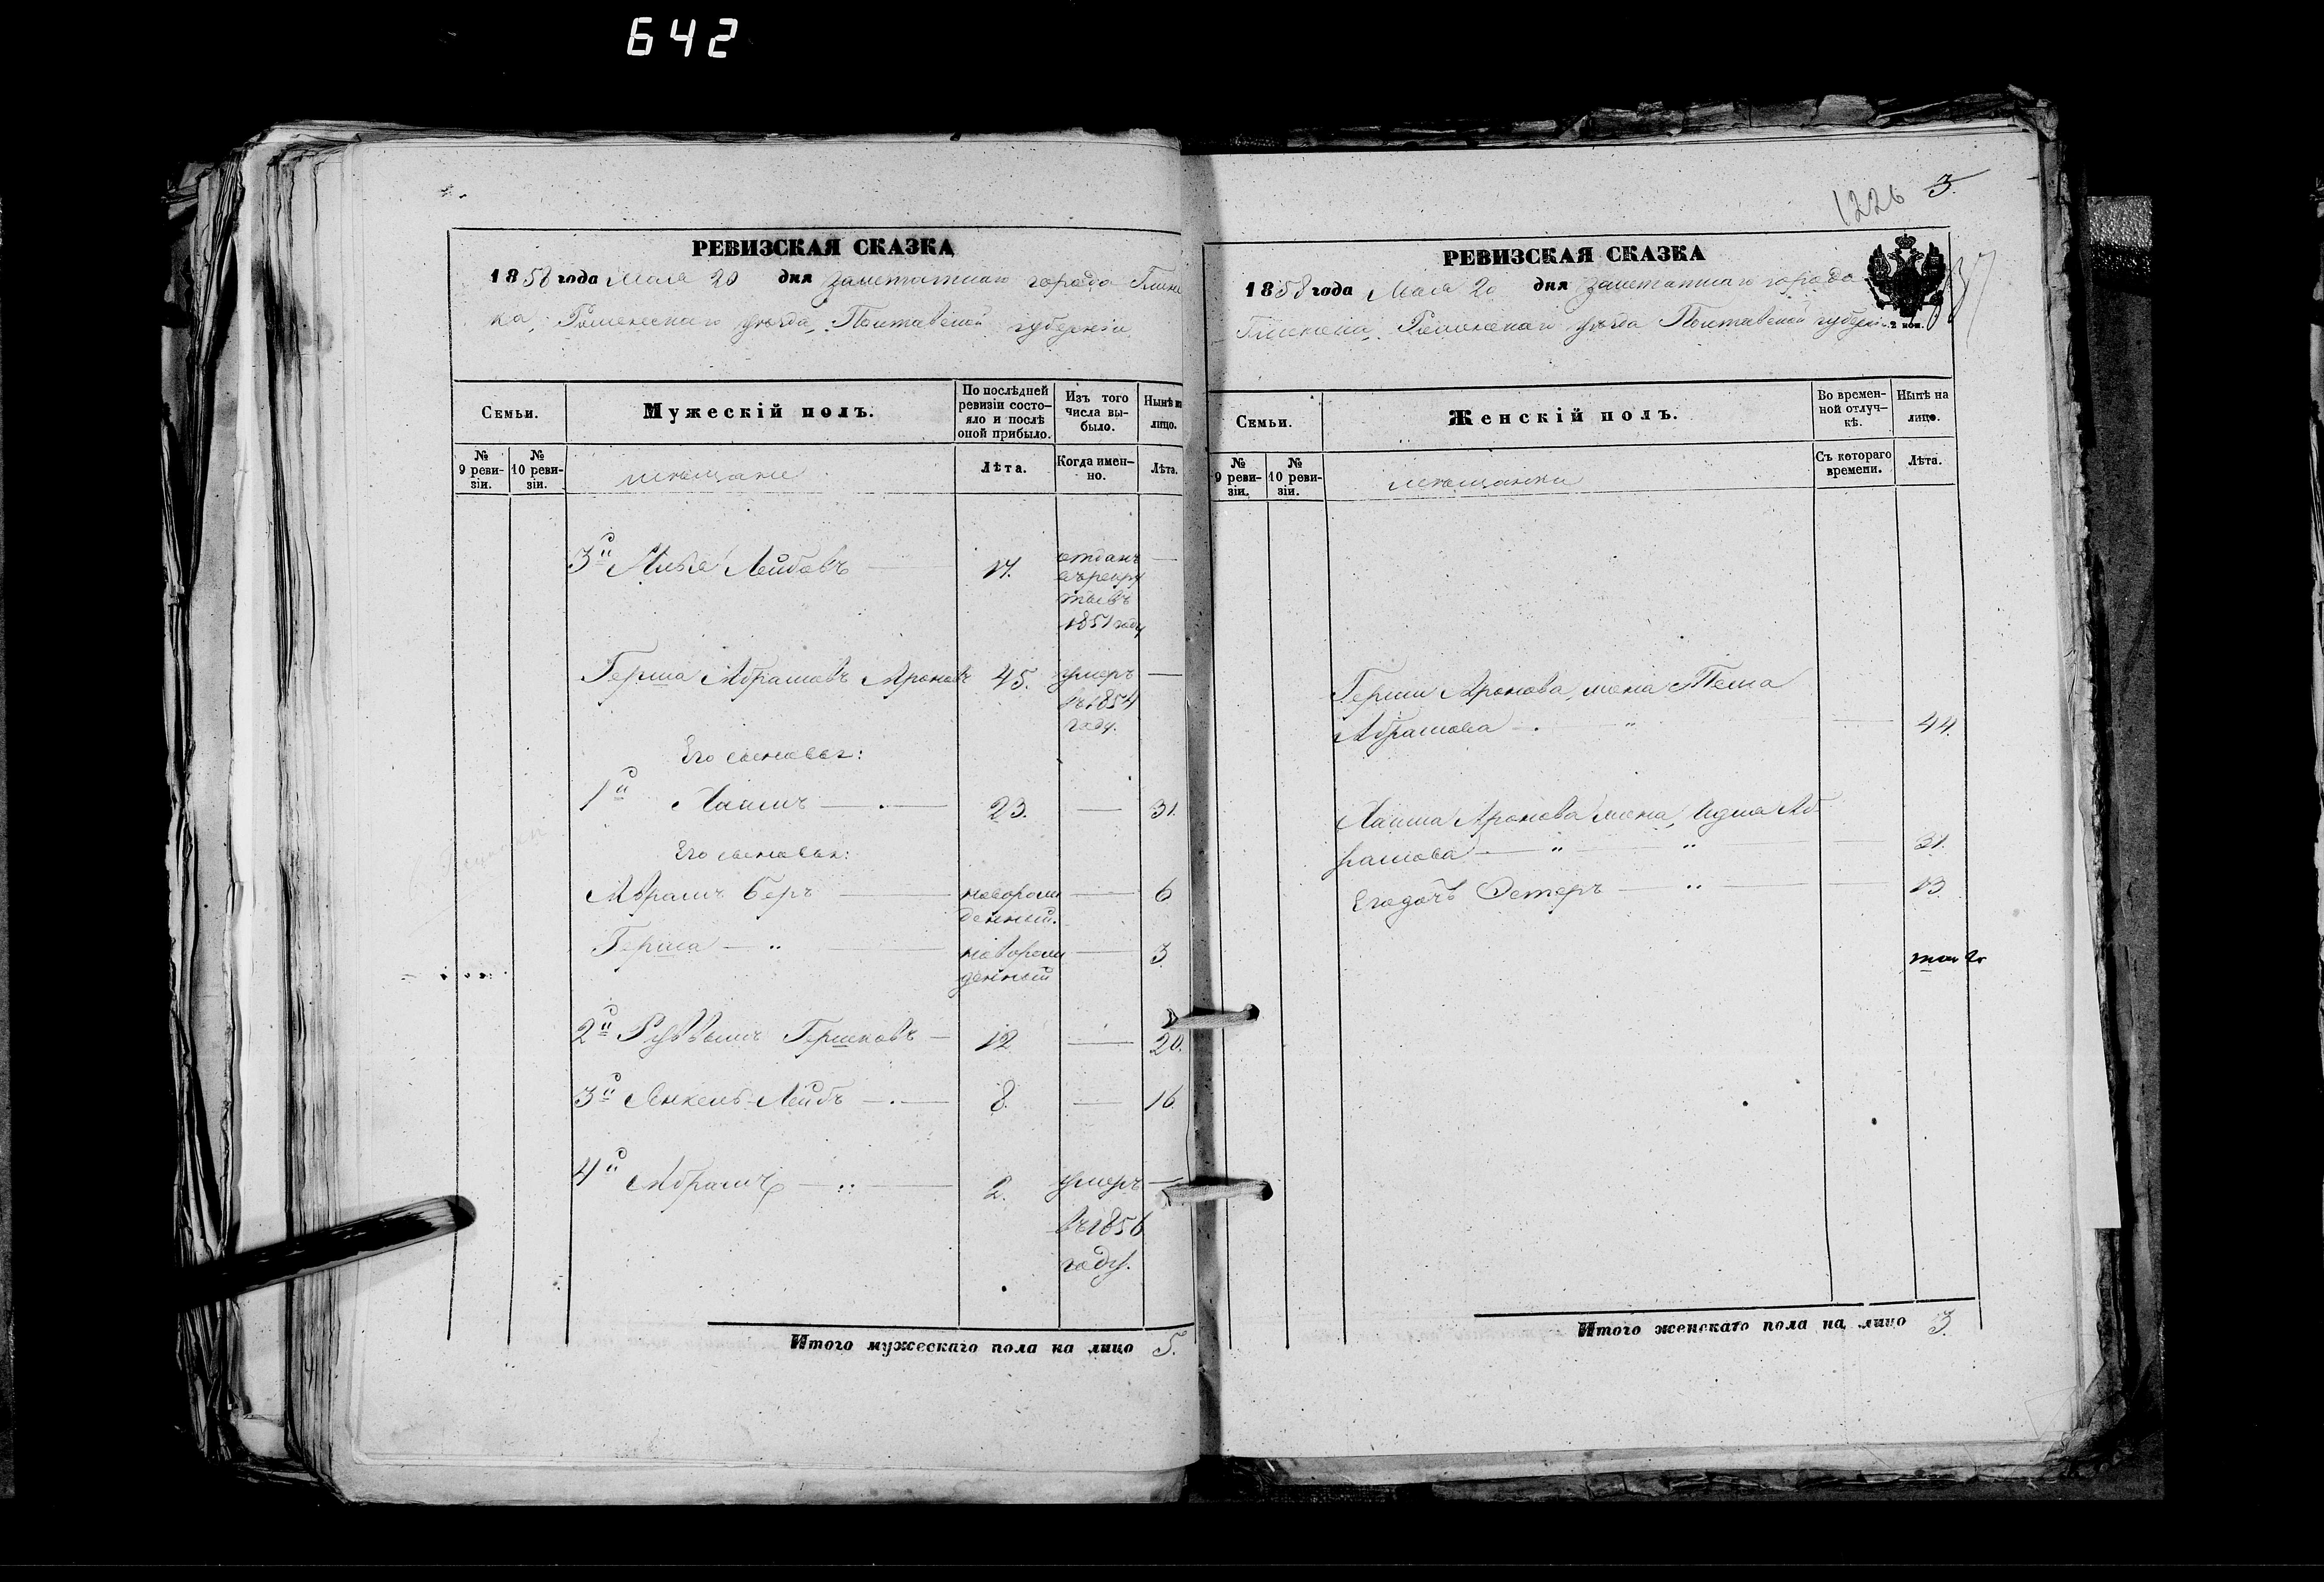 642
РЕВИЗСКАЯ СКАЗКА
1858 года Мая 20 дня заштатнаго города Глинс
ка, Роменскаго уѣзда, Полтавской губерніи
Семьи.
Мужескій полъ.
По послѣдней ревизіи состо-яло и послѣ оной прибыло.
Изъ того числа вы-было.
Нынѣ на лицо.
№ 9 реви-зіи.
№ 10 реви-зіи.
мѣщане
Лѣта.
Когда имен-но.
Лѣта.
3й Лейбовъ 17. отданъ
въ рекру
ты въ
1851 году
Герша Абрамовъ Ароновъ 45. умеръ
въ 1854
году.
Его сыновья:
1й Хаимъ 23. 31.
Его сыновья:
Абрамъ Беръ новорож 6
денный.
Герша новорож 3
денный
2й Гершковъ 12 20.
3й Янкель-Лейбъ 8. 16
4й Абрамъ 2. умеръ
въ 1856
году.
Итого мужескаго пола на лицо 5.
1226 3.
РЕВИЗСКАЯ СКАЗКА
1858 года Мая 20 дня заштатнаго города
Глинска, Роменскаго уѣзда Полтавской губерні
2 коп.
Семьи.
Женскій полъ.
Во времен-ной отлуч-кѣ.
Нынѣ на лицо.
№ 9 реви-зіи.
№ 10 реви-зіи.
мѣщанки
Съ котораго времени.
Лѣта.
Герши Аронова жена
Абрамова 44.
Хаима Аронова жена, Аб
рамова 31.
Его дочь Эстеръ 13.
Итого женскаго пола на лицо 3.